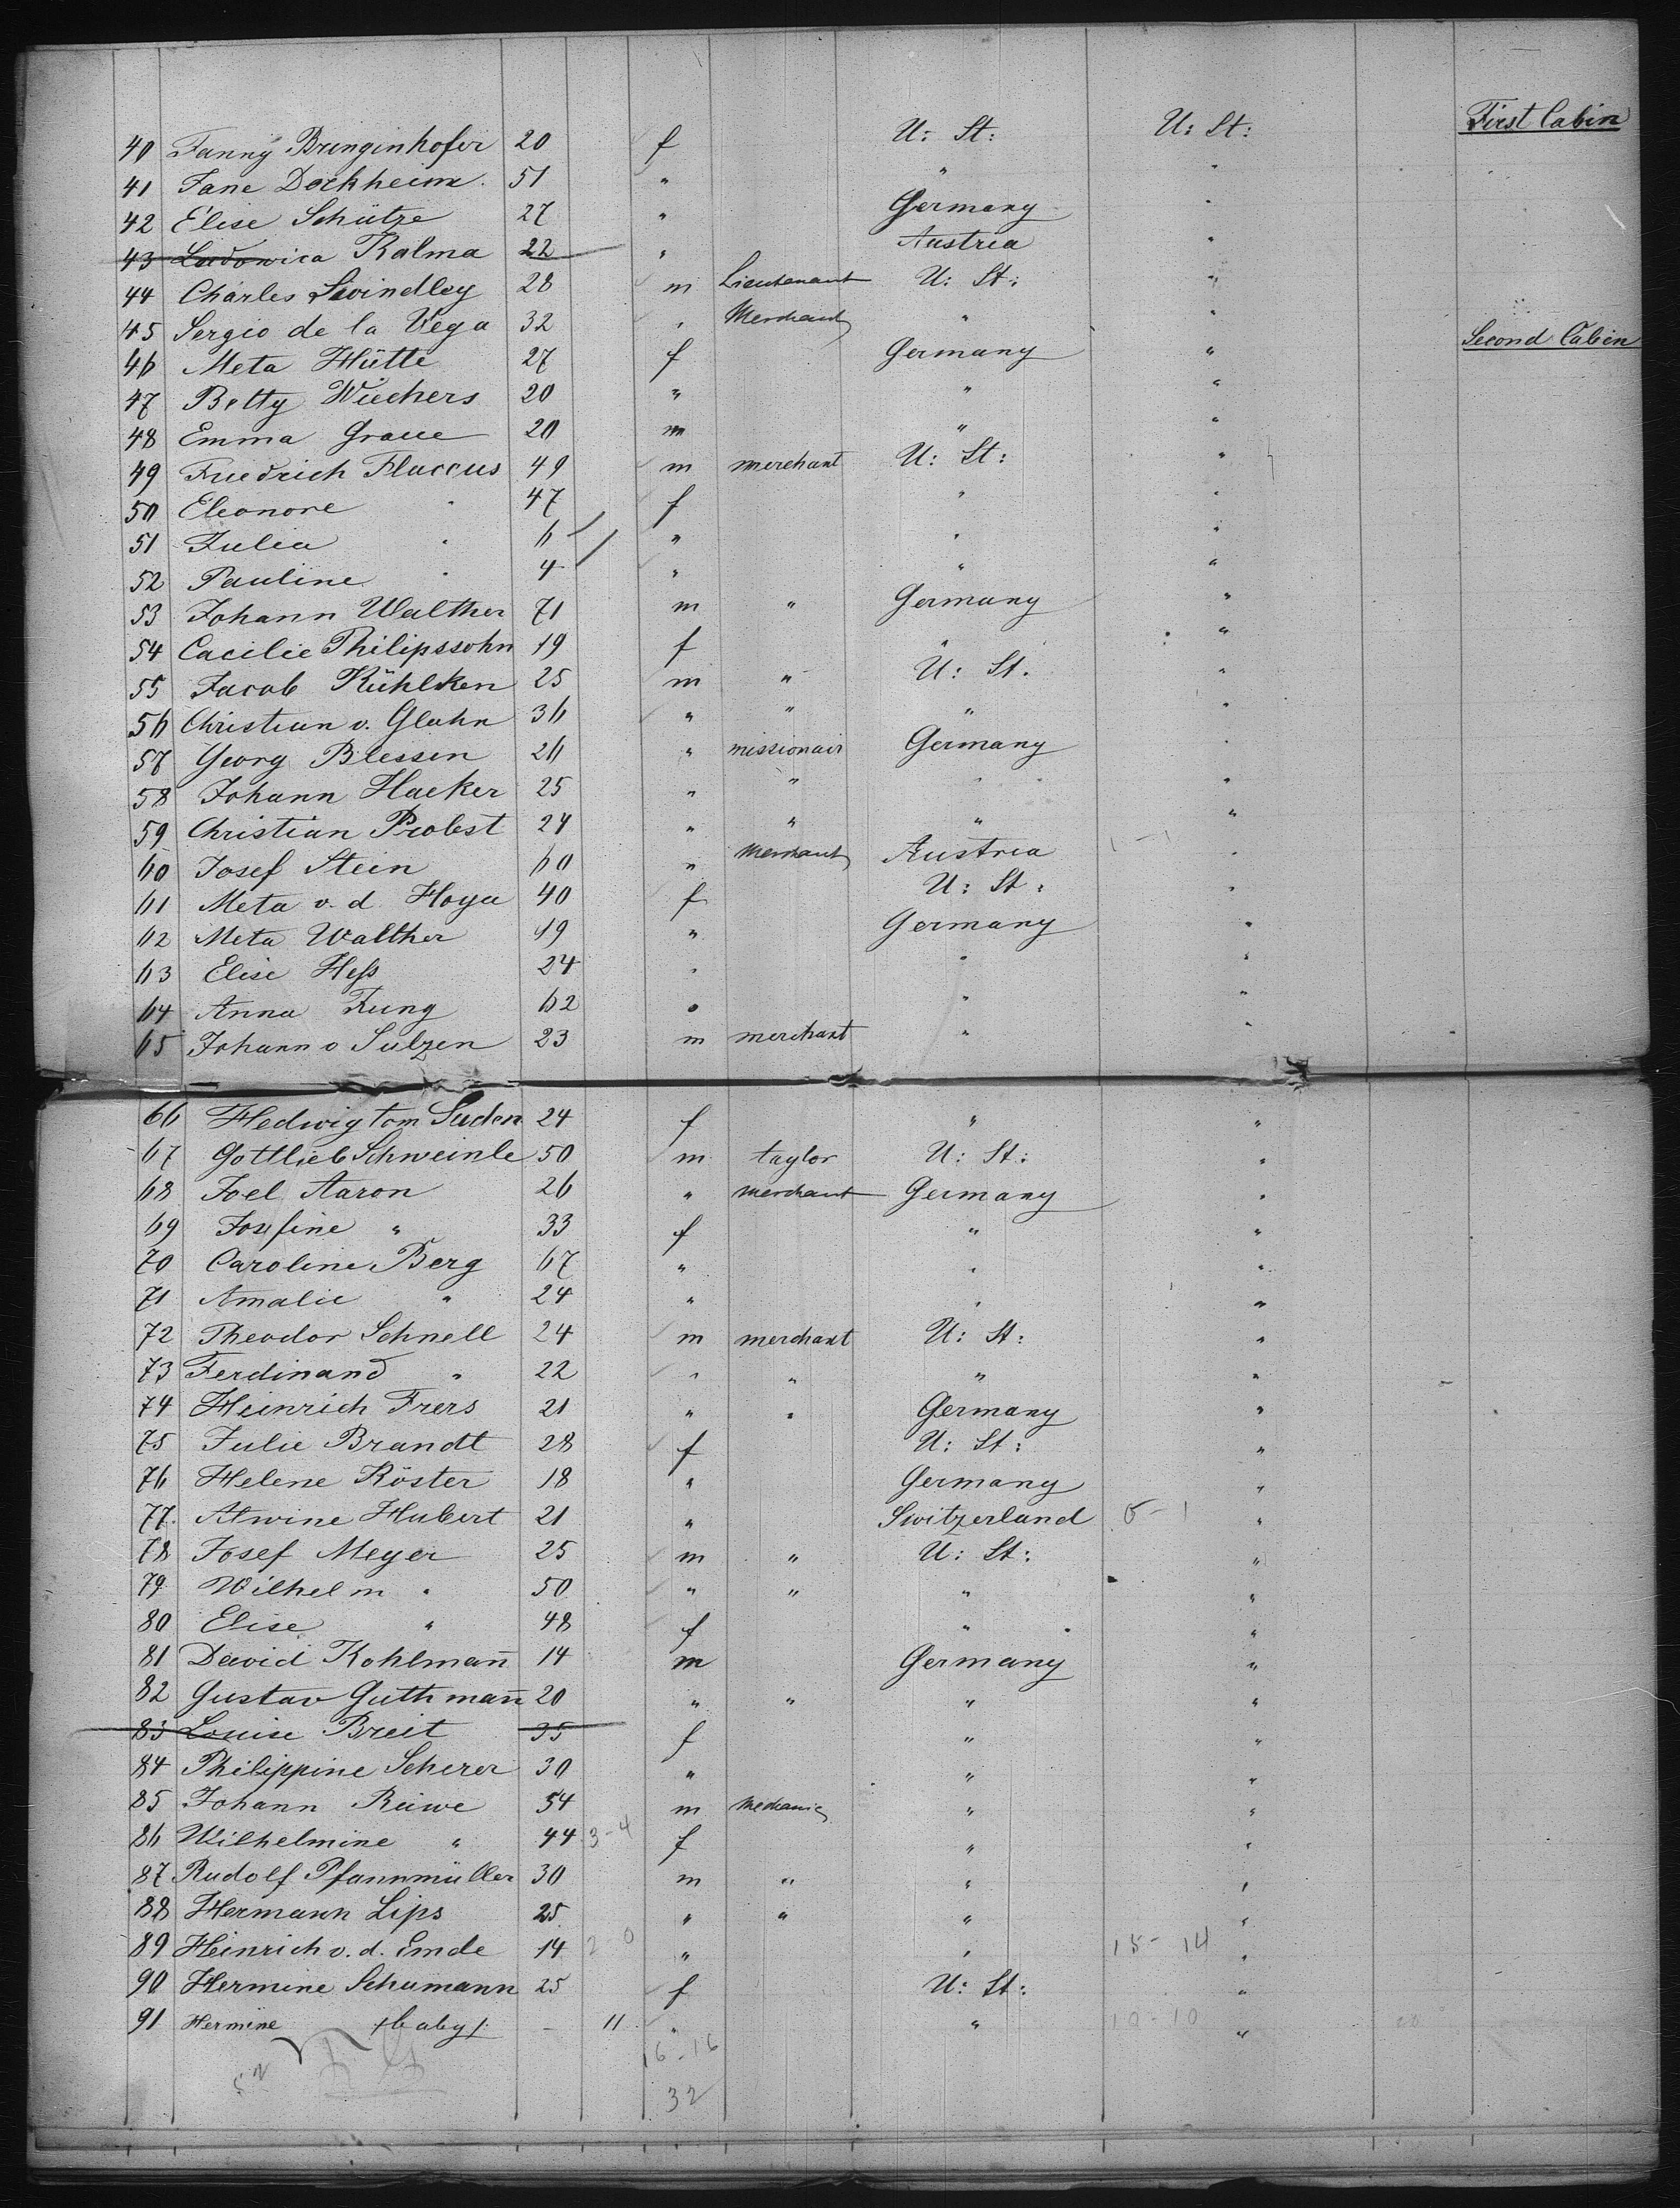 First Cabin
40 Fanny Bringinhofer 20 f U: St: U: St:
41 Jane Dockheim. 51 " " "
42 Elise Schütze 27 " Germany "
43 Ludowica Kalma 22 " Austria "
44 Charles Swindley 28 m Lieutenant U: St: "
45 Sergio de la Vega 32 " Merchant " "
46 Meta Hütte 27 f Germany " Second Cabin
47 Betty Wiechers 20 " " "
48 Emma Graue 20 m " "
49 Friedrich Flaccus 49 m merchant U: St: "
50 Eleonore " 47 f " "
51 Julia " 6 " " "
52 Pauline " 4 " " "
53 Johann Walther 71 m " Germany "
54 Cacilie Philipssohn 19 f " "
55 Jacob Kühlken 25 m " U: St. "
56 Christian v. Glahn 36 " " " "
57 Georg Blessen 26 " missionair Germany "
58 Johann Hacker 25 " " " "
59 Christian Probst 24 " " " "
60 Josef Stein 60 " Merchant Austria "
61 Meta v. d. Hoya 40 f U: St: "
62 Meta Walther 19 " Germany "
63 Elise Hess 24 " " "
64 Anna Jung 62 " " "
65 Johann v Sulzen 23 m merchant " "
66 Hedwig tom Suden 24 f " "
67 Gottlieb Schweinle 50 m taylor U: St: "
68 Joel Aaron 26 " merchant Germany "
69 Josefine " 33 f " "
70 Caroline Berg 67 " " "
71 Amalie " 24 " " "
72 Theodor Schnell 24 m merchant U: St: "
73 Ferdinand " 22 " " " "
74 Heinrich Frers 21 " " Germany "
75 Julie Brandt 28 f U: St: "
76 Helene Röster 18 " Germany "
77. Alwine Hubert 21 " Switzerland "
78 Josef Meyer 25 m " U: St: "
79 Wilhelm " 50 " " " "
80 Elise " 48 f " "
81 David Kohlmañ 14 m Germany "
82 Gustav Guthmañ 20 " " " "
83 Louise Breit 35 f " "
84 Philippine Scherer 30 " " "
85 Johann Reiwe 54 m Mechanic " "
86 Wilhelmine " 44 3-4 f " "
87 Rudolf Pfannmüller 30 m " " "
88 Hermann Lips 25 " " " "
89 Heinrich v. d. Emde 14 2 0 " " 15-14 "
90 Hermine Schumann 25 f U: St: "
91 Hermine /baby/ - 11 " " 10-10 "
16-16
32